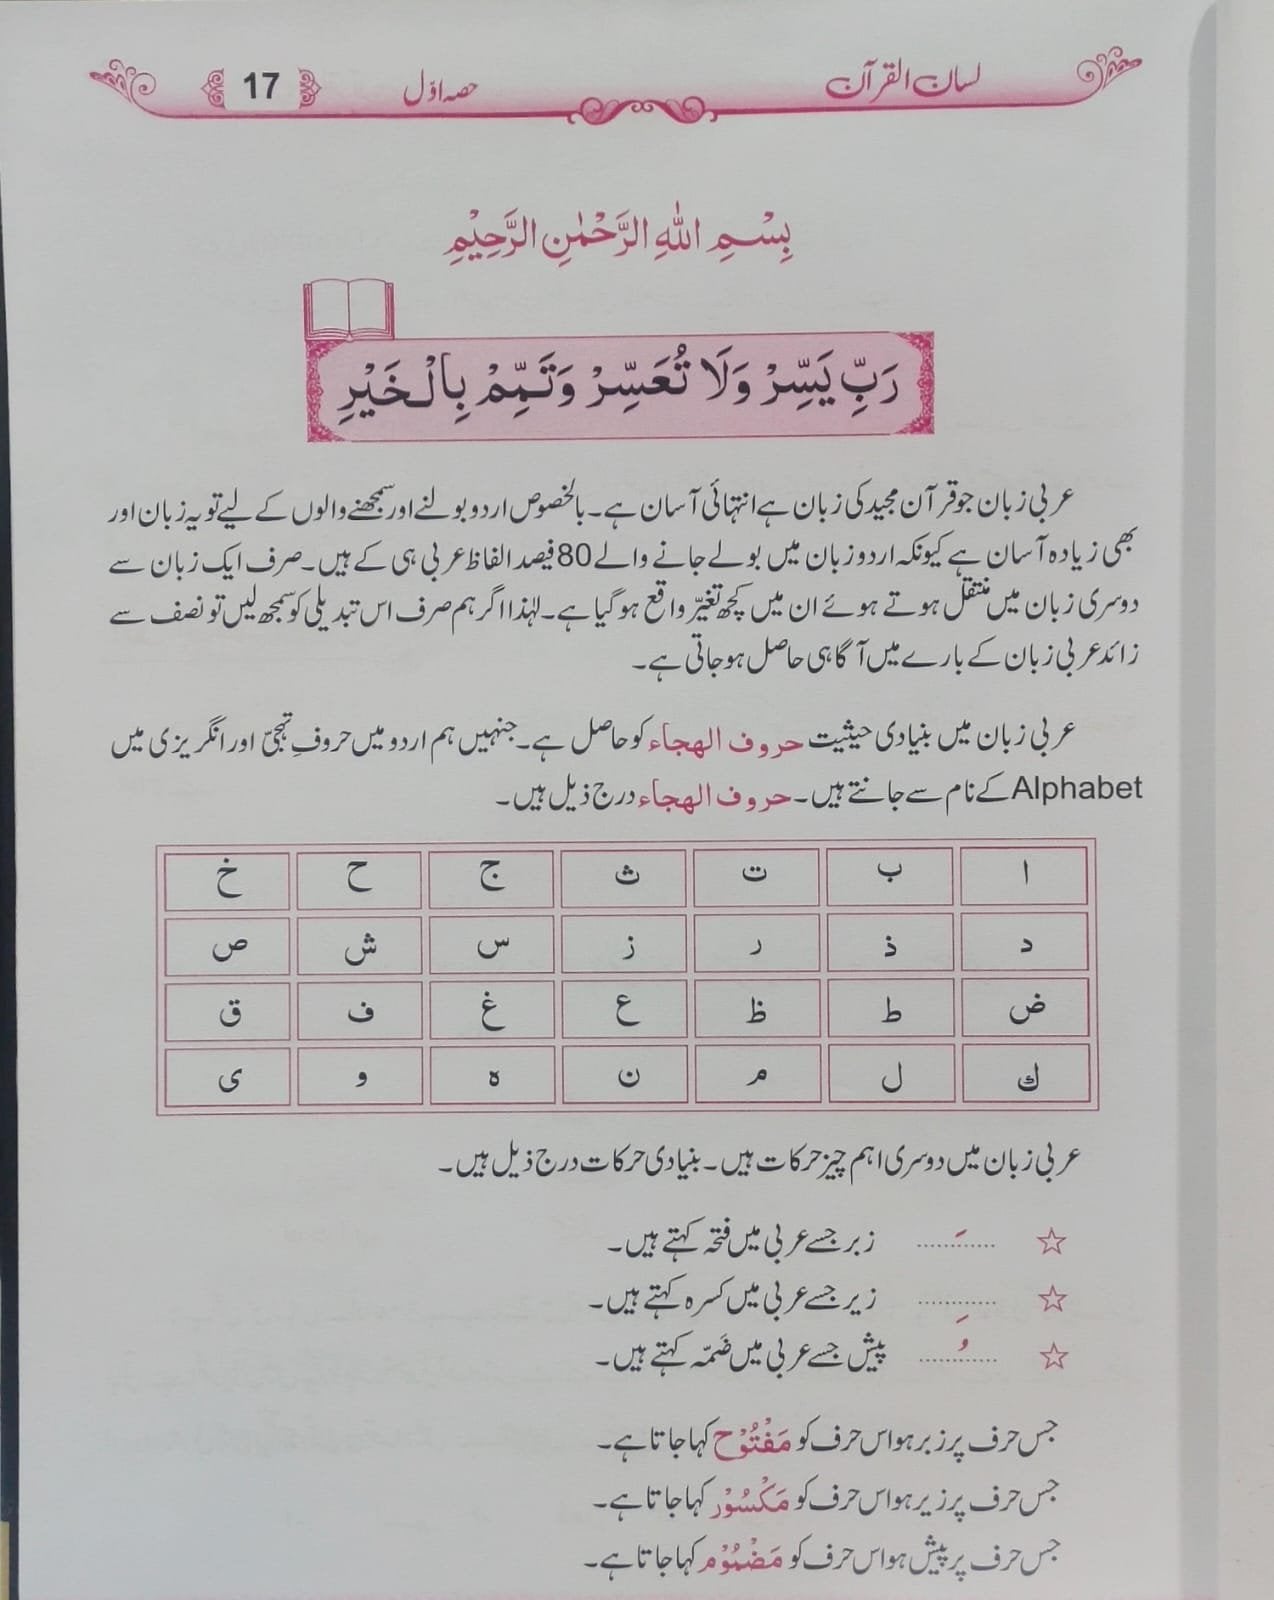 لسان القرآن
حصہ اوّل
17
بِسْمِ اللّٰهِ الرَّحْمٰنِ الرَّحِيْمِ
رَبِّ يَسِّرْ وَلَا تُعَسِّرْ وَتَمِّمْ بِالْخَيْرِ
عربی زبان جو قرآن مجید کی زبان ہے انتہائی آسان ہے۔ بالخصوص اردو بولنے اور سمجھنے والوں کے لیے تو یہ زبان اور
بھی زیادہ آسان ہے کیونکہ اردو زبان میں بولے جانے والے 80 فیصد الفاظ عربی ہی کے ہیں۔ صرف ایک زبان سے
دوسری زبان میں منتقل ہوتے ہوئے ان میں کچھ تغیّر واقع ہوگیا ہے۔ لہٰذا اگر ہم صرف اس تبدیلی کو سمجھ لیں تو نصف سے
زائد عربی زبان کے بارے میں آگاہی حاصل ہوجاتی ہے۔
عربی زبان میں بنیادی حیثیت حروف الهجاء کو حاصل ہے۔ جنہیں ہم اردو میں حروفِ تہجّی اور انگریزی میں
Alphabet کے نام سے جانتے ہیں۔ حروف الهجاء درج ذیل ہیں۔
ا ب ت ث ج ح خ
د ذ ر ز س ش ص
ض ط ظ ع غ ف ق
ك ل م ن ہ و ی
عربی زبان میں دوسری اہم چیز حرکات ہیں۔ بنیادی حرکات درج ذیل ہیں۔
☆ .....َ..... زبر جسے عربی میں فتحہ کہتے ہیں۔
☆ .....ِ..... زیر جسے عربی میں کسرہ کہتے ہیں۔
☆ .....ُ..... پیش جسے عربی میں ضَمّہ کہتے ہیں۔
جس حرف پر زبر ہو اس حرف کو مَفْتُوْح کہا جاتا ہے۔
جس حرف پر زیر ہو اس حرف کو مَكْسُوْر کہا جاتا ہے۔
جس حرف پر پیش ہو اس حرف کو مَضْمُوْم کہا جاتا ہے۔